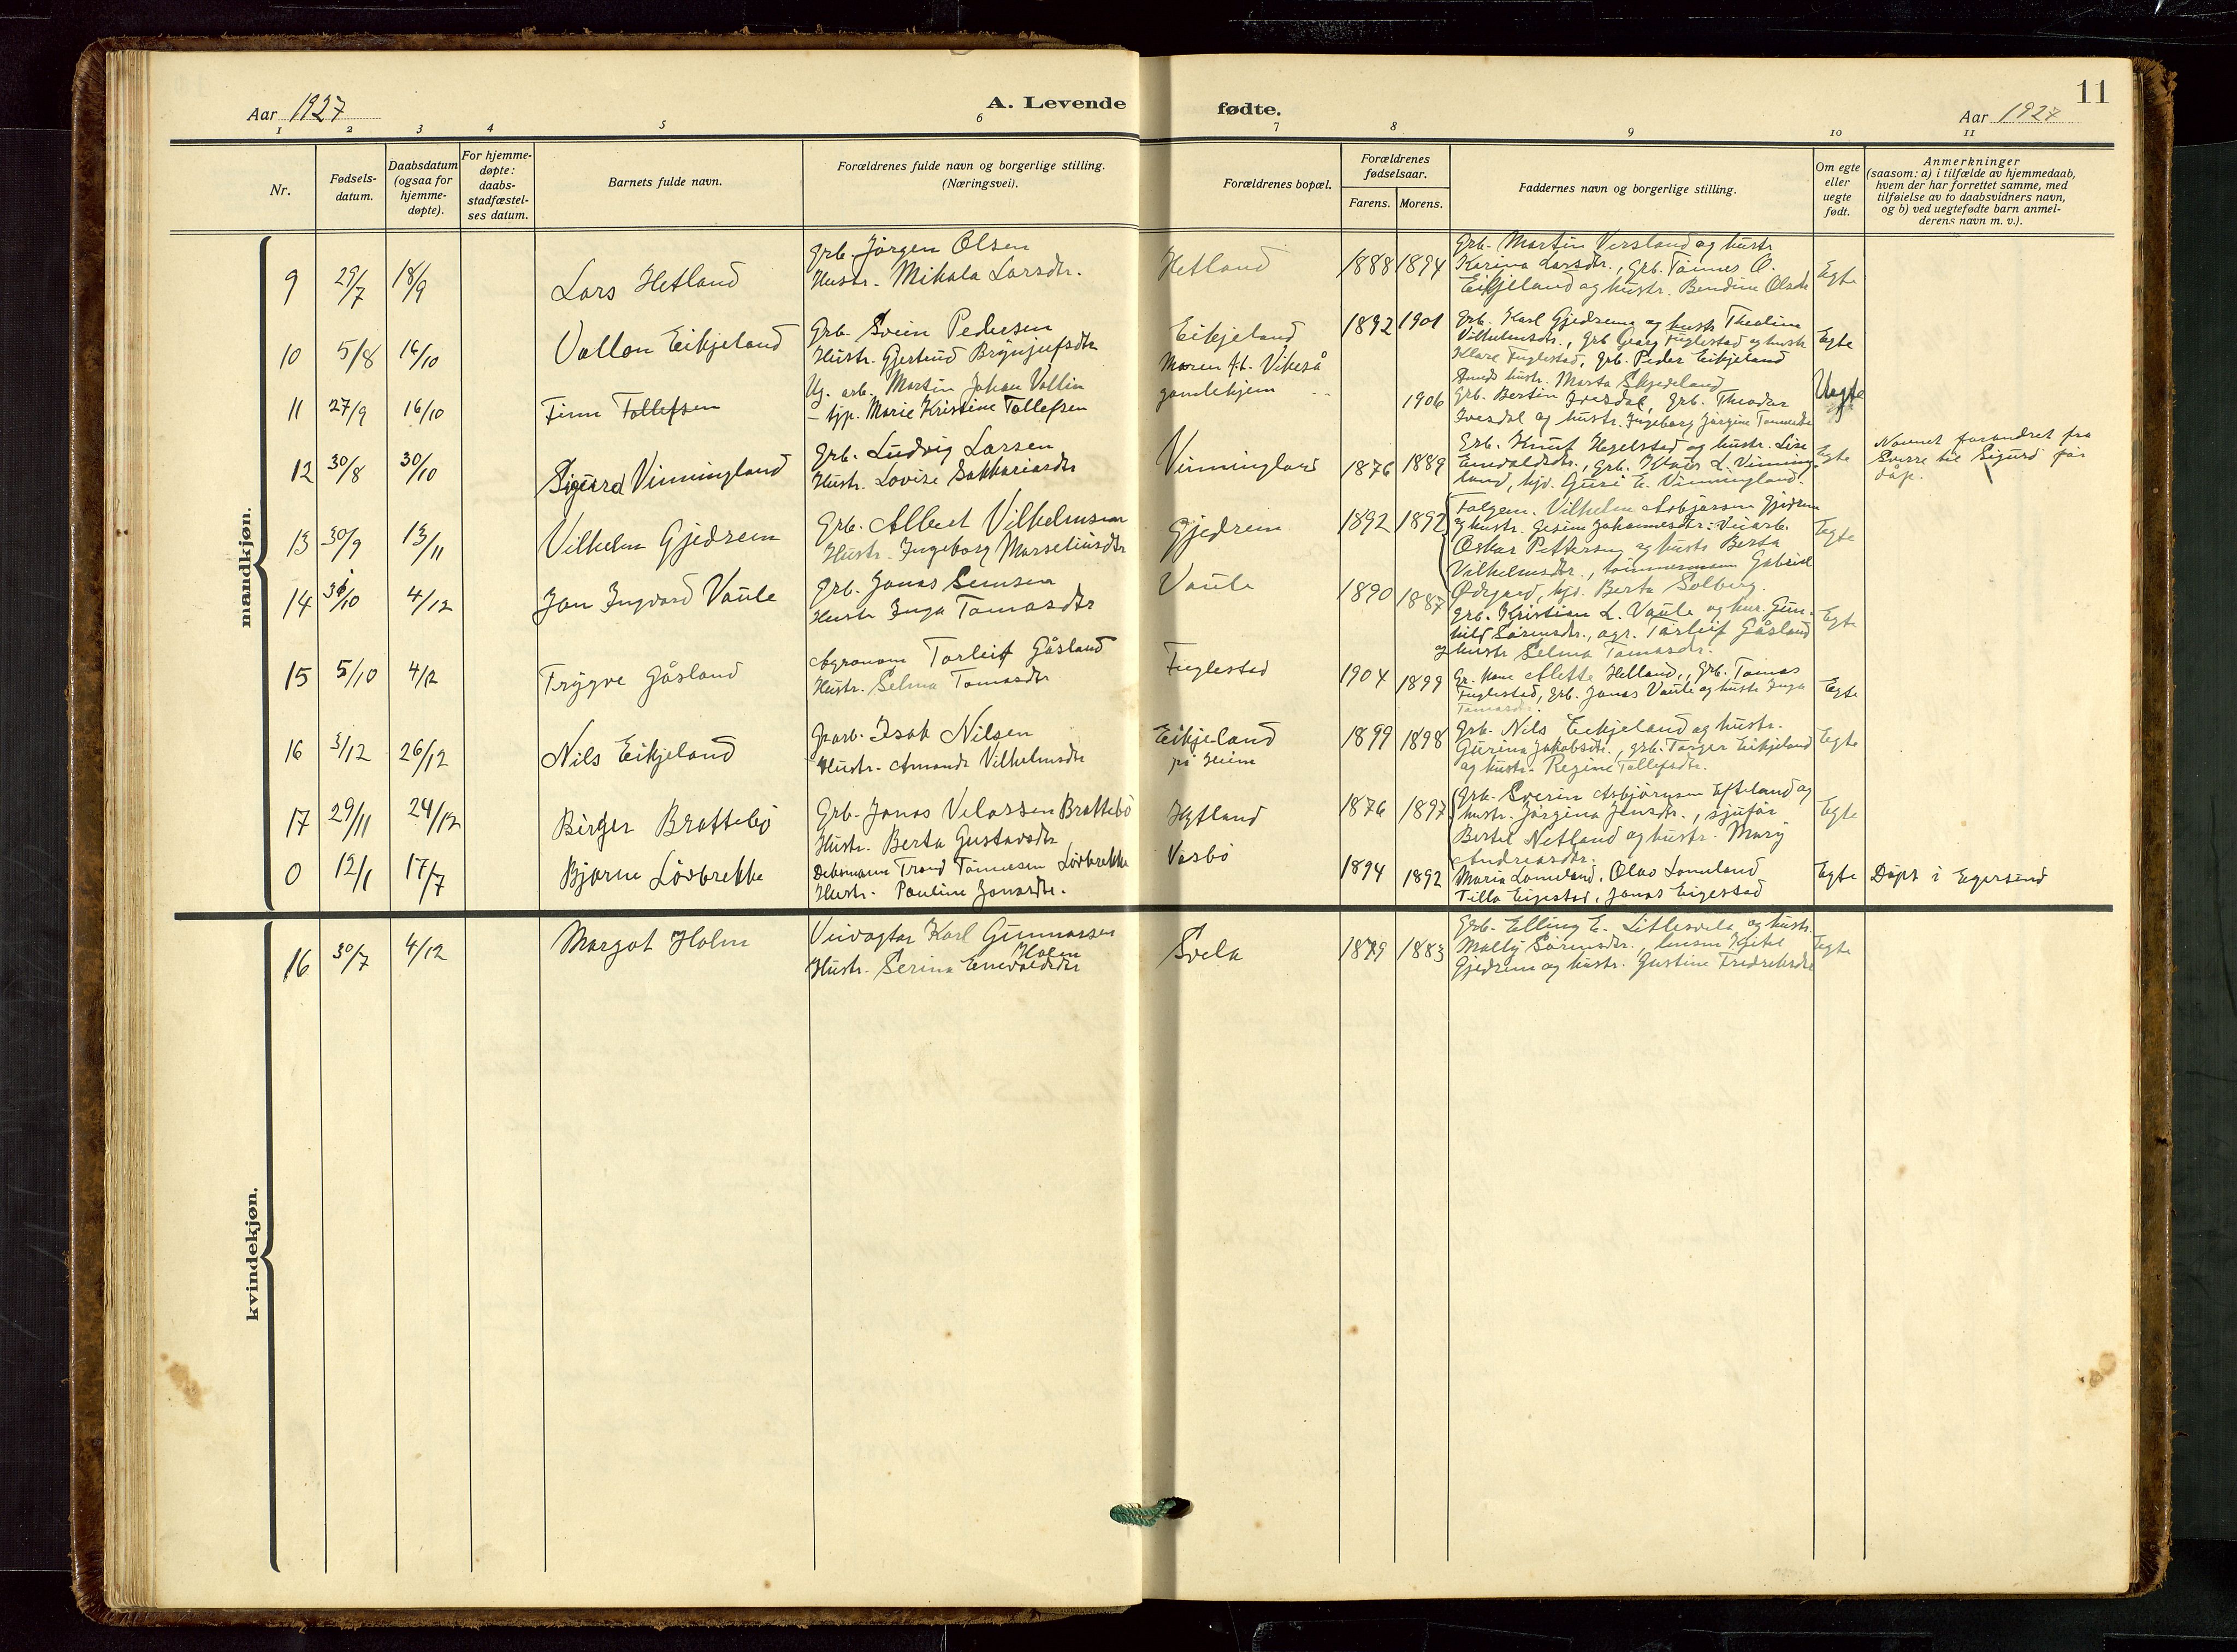 11
Aar 1927
A. Levende fødte.
Aar 1927
1 2 3 4 5 6 7 8 9 10 11
Nr.
Fødsels-
datum.
Daabsdatum
(ogsaa for
hjemme-
døpte).
For hjemme-
døpte:
daabs-
stadfæstel-
ses datum.
Barnets fulde navn.
Forældrenes fulde navn og borgerlige stilling.
(Næringsvei).
Forældrenes bopæl.
Forældrenes
fødselsaar.
Farens. Morens.
Faddernes navn og borgerlige stilling.
Om egte
eller
uegte
født.
Anmerkninger
(saasom: a) i tilfælde av hjemmedaab,
hvem der har forrettet samme, med
tilføielse av to daabsvidners navn,
og b) ved uegtefødte barn anmel-
derens navn m. v.).
mandkjøn.
9 29/7 18/9 Lars Hetland
Grb. Jörgen Olsen
Hustr. Mikala Larsdtr.
Hetland 1888 1894
Grb. Martin Versland og hustr
Karina Larsdtr., Grb. Tönnes O.
Eikjeland og hustr. Bendine Olsdtr
Egte
10 5/8 16/10 Vallon Eikjeland
Grb. Svein Pedersen
Hustr. Gjertrud Brynjufsdtr
Eikjeland 1892 1901
Grb. Karl Gjedrem og hustr Theoline
Vilhelmsdtr., Grb Georg Fuglestad og hustr
Klara Fuglestad, Grb. Peder Eikjeland
Egte
11 27/9 16/10 Finn Tollefsen
Ug. arb. Martin Johan Vallin
– tjp. Marie Kristine Tollefsen
Maren f.h. Vikeså
gamlehjem
1906
hustr. Marta Skjedeland
Grb. Bertin Ivesdal, Grb. Theodor
Ivesdal og hustr. Ingeborg Jörgine
Uegte
12 30/8 30/10 Sigurd Vinningland
Grb. Ludvig Larsen
Hustr. Lovise Sakkariasdtr
Vinningland 1876 1889
Grb. Knut Hegelstad og hustr. Lise
Enevaldsdtr., Grb. L. Vinning-
land, hjd. Guri E. Vinningland.
Egte
Navnet forandret fra
Sverre til Sigurd för
dåp.
13 30/9 13/11 Vilhelm Gjedrem
Grb. Albert Vilhelmsen
Hustr. Ingeborg Marseliusdtr
Gjedrem 1892 1892
Folgem. Vilhelm Asbjørnsen Gjedrem
og hustr. Gesine Johannesdtr: Veiarb.
Oskar Pettersen og hustr Berta
Vilhelmsdtr., tömmermann Gabriel
Ödegård, hjd. Berta Solberg.
Egte
14 /10 4/12 Jan Ingvard Vaule
Grb. Jonas Semsen
Hustr Inga Tomasdtr
Vaule 1890 1887
Grb. Kristian L. Vaule og hus. Gun-
hild Sörensdtr., agr. Torleif Gåsland
og hustr Selma Tomasdtr.
Egte
15 5/10 4/12 Trygve Gåsland
Agronom Torleif Gåsland
Hustr. Selma Tomasdtr
Fuglestad 1904 1899
Alette Helland., Grb. Tomas
Fuglestad, Grb. Jonas Vaule og hustr Inga
Tomasdtr.
Egte
16 3/12 26/12 Nils Eikjeland
Isak Nilsen
Hustr. Amanda Vilhelmsdtr
Eikjeland
på Heim
1899 1898
Grb. Nils Eikjeland og hustr.
Gurina Jakobsdtr., grb. Torger Eikjeland
og hustr. Regine Tollefsdtr.
Egte
17 29/11 24/12 Birger Brattebö
Grb. Jonas Velassen Brattebö
Hustr. Berta Gustavsdtr
1876 1897
Grb. Sverin Asbjörnsen Efteland og
hustr. Jörgina Jensdtr., sjuför
Bertel Netland og hustr. Mary
Andreasdtr.
Egte
0 12/1 17/7 Bjarne Lövbrekke
Trond Tönnesen Lövbrekke
Hustr. Pauline Jonasdtr.
Vasbö 1894 1892
Maria Lomeland, Olav Lomeland
Tilla Eigestad, Jonas Eigestad
Egte
Döpt i Egersund
kvindekjøn.
16 30/7 4/12 Margot Holm
Veivogter Karl Gunnarsen
Holm
Hustr. Serina Enevaldsdtr
Svela 1879 1883
Grb. Elling E. Litlesvela og hustr.
Mally Sörensdtr.,
Gjedrem og hustr. Gustine Fredriksdtr
Egte